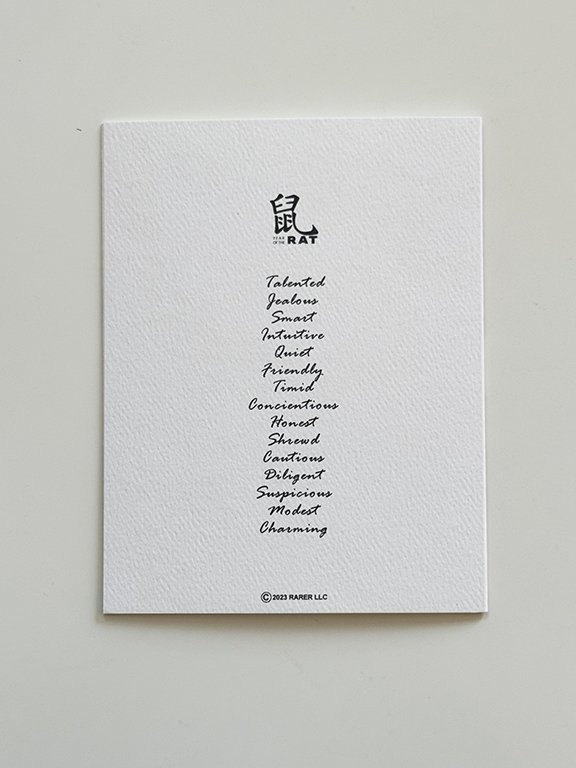 鼠
YEAR
OF THE RAT
Talented
Jealous
Smart
Intuitive
Quiet
Friendly
Timid
Concientious
Honest
Shrewd
Cautious
Diligent
Suspicious
Modest
Charming
©2023 RARER LLC